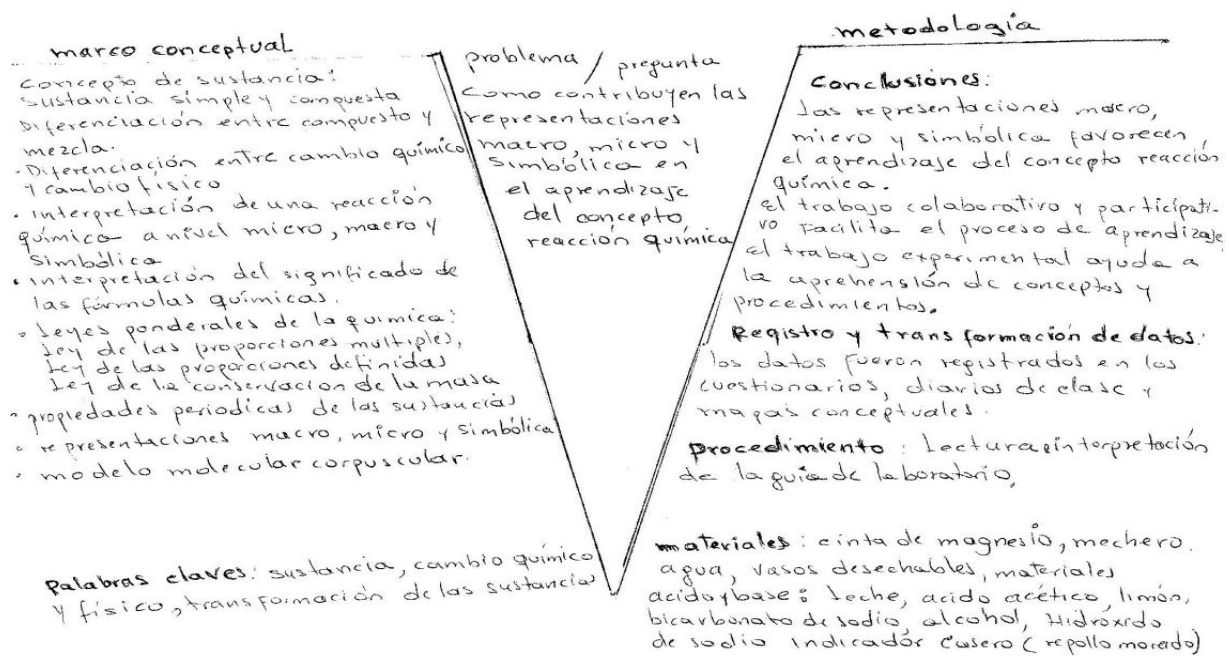 marco conceptual
Concepto de sustancia:
Sustancia simple y compuesta
Diferenciación entre compuesto y
mezcla.
· Diferenciación entre cambio químico
y cambio físico
· interpretación de una reacción
química a nivel micro, macro y
Simbólica
· interpretación del significado de
las fórmulas químicas.
· Leyes ponderales de la química:
Ley de las proporciones multiples,
Ley de las proporciones definidas
Ley de la conservacion de la masa
· propiedades periodicas de las sustancias
· representaciones macro, micro y simbólica
· modelo molecular corpuscular.
Palabras claves: sustancia, cambio químico
y físico, transformación de las sustancias
problema / pregunta
Como contribuyen las
representaciones
macro, micro y
Simbólica en
el aprendizaje
del concepto
reacción química
metodología
Conclusiones:
Las representaciones macro,
micro y simbólica favorecen
el aprendizaje del concepto reacción
química.
el trabajo colaborativo y participati-
vo Facilita el proceso de aprendizaje
el trabajo experimental ayuda a
la aprehensión de conceptos y
procedimientos.
Registro y transformación de datos:
los datos fueron registrados en los
cuestionarios, diarios de clase y
mapas conceptuales.
procedimiento: Lectura e interpretación
de la guía de laboratorio,
materiales: cinta de magnesio, mechero.
agua, vasos desechables, materiales
acido y base: leche, acido acético, limón,
bicarbonato de sodio, alcohol, Hidróxido
de sodio indicador Casero (repollo morado)